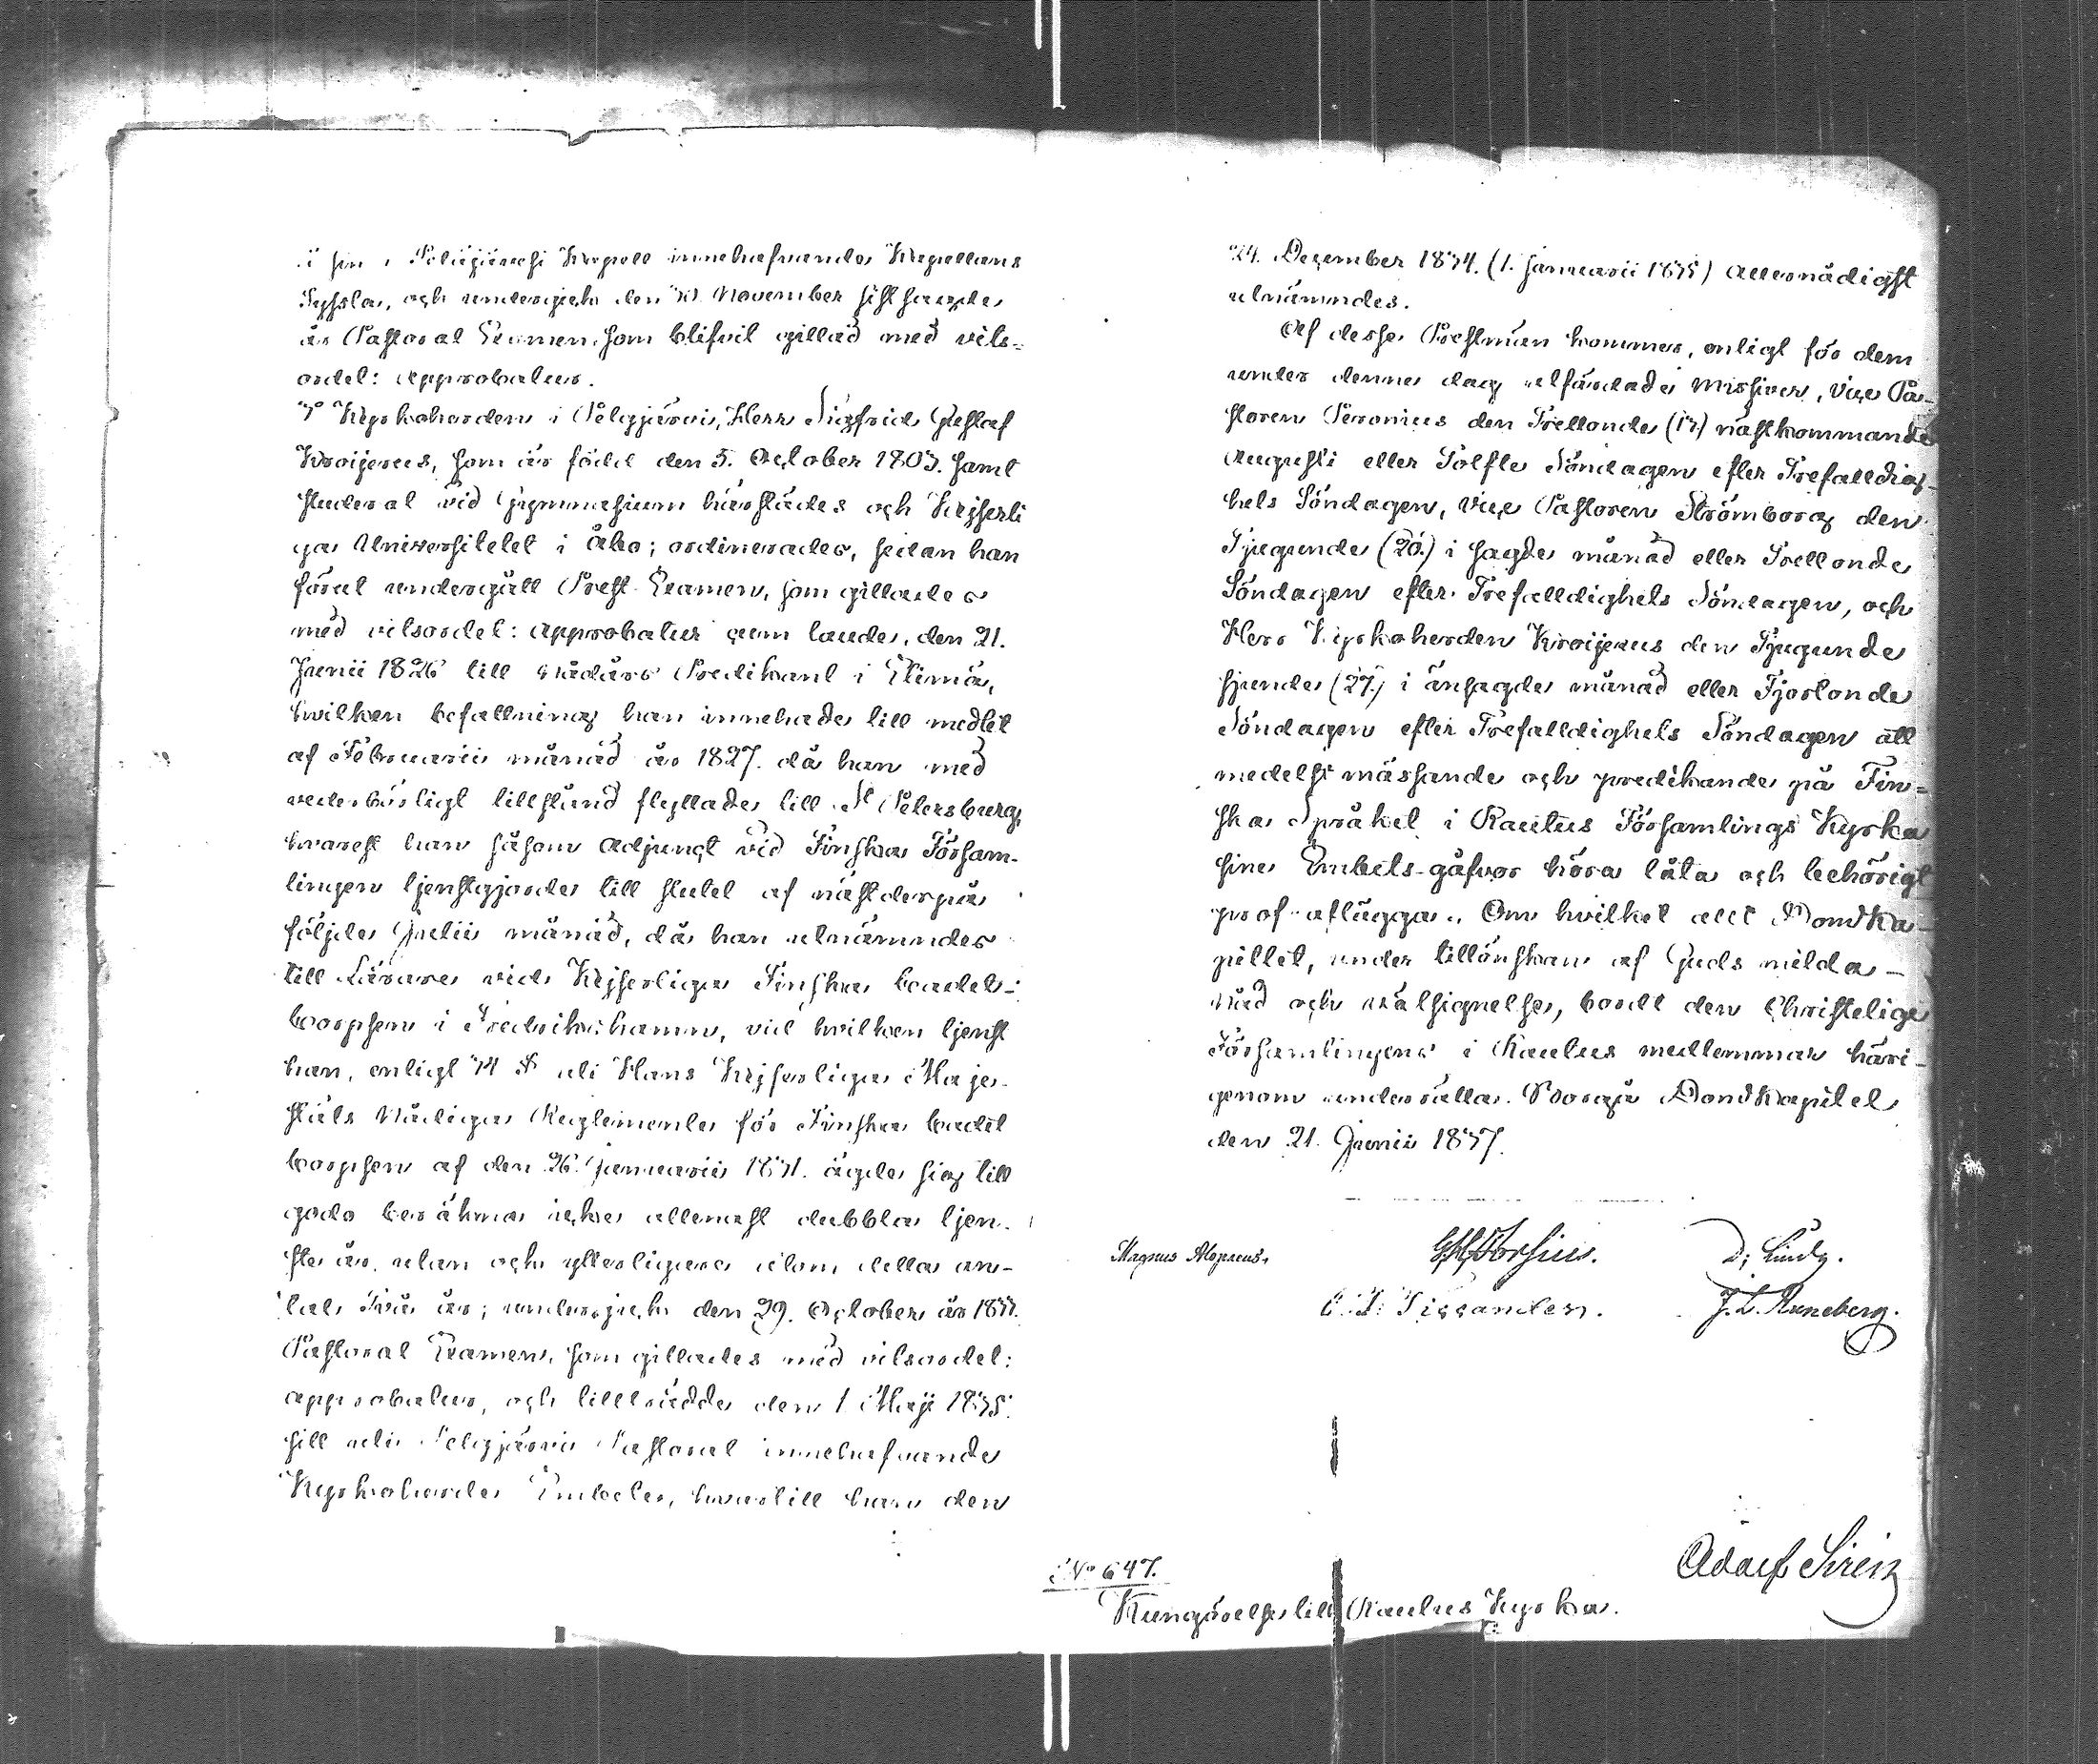 i sin i Pelgjärvi Kapell innehafvande Kapellans
Syssla, och undergick den 30. November sistsagde
år Pastoral Examen, som blifvit gillad med vits-
ordet: approbatur.
3º Kyrkoherden i Pelgjärvi, Herr Sigfrid Gustaf
Kroijerus, som är född den 5. October 1803. samt
studerat vid Gymnasium härstädes och Kejserli
ga Universitetet i Åbo; ordinerades, sedan han
förut undergått Prest-Examen, som gillades
med vitsordet: approbatur cum laude, den 21.
Junii 1826 till nådårs Predikant i Elimä,
hvilken befattning han innehade till medlet
af Februarii månad år 1827. då han med
vederbörligt tillstånd flyttade till St Petersburg,
hvarest han såsom Adjunct vid Finska Försam-
lingen tjenstgjorde till slutet af nästderpå
följde Julii månad, då han utnämndes
till Lärare vid Kejserliga Finska Cadet-
Corpsen i Fredrikshamn, vid hvilken tjenst
han, enligt 74 § uti Hans Kejserliga Maje-
stäts Nådiga Reglemente för Finska Cadet
Corpsen af den 26. Januarii 1831. ägde sig till
godo beräkna icke allenast dubbla tjen-
ste år, utan och ytterligare utom detta an-
tal Två år; undergick den 29. October år 1833.
Pastoral Examen, som gillades med vitsordet:
approbatur, och tillträdde den 1 Maji 1835.
sitt uti Pelgjärvi Pastorat innehafvande
Kyrkoherde Embete, hvartill han den
24. December 1834. (1. Januarii 1835) allernådigst
utnämndes.
Af desse Prestmän kommer, enligt för dem
under denne dag utfärdade Missiver, Vice Pa-
storen Peronius den Trettonde (13.) nästkommande
Augusti eller Tolfte Söndagen efter Trefalldig-
hets Söndagen, Vice Pastoren Strömborg den
Tjugunde (20.) i sagde månad eller Trettonde
Söndagen efter Trefalldighets Söndagen, och
Herr Kyrkoherden Kroijerus den Tjugunde
sjunde (27.) i ansagde månad eller Fjortonde
Söndagen efter Trefalldighets Söndagen att
medelst mässande och predikande på Fin-
ska Språket i Rautus Församlings Kyrka
sine Embets-gåfvor höra låta och behörigt
prof aflägga. Om hvilket allt Domka-
pitlet, under tillönskan af Guds milda
nåd och välsignelse, bordt den Christeliga
Församlingens i Rautus medlemmar häri-
genom underrätta. Borgå Domkapitel
den 21. Junii 1837.
Magnus Alopaeus.
D: Lindg.
J. L. Runeberg.
No 647.
Adolf Siren
Kungörelse till Rautus Kyrka.